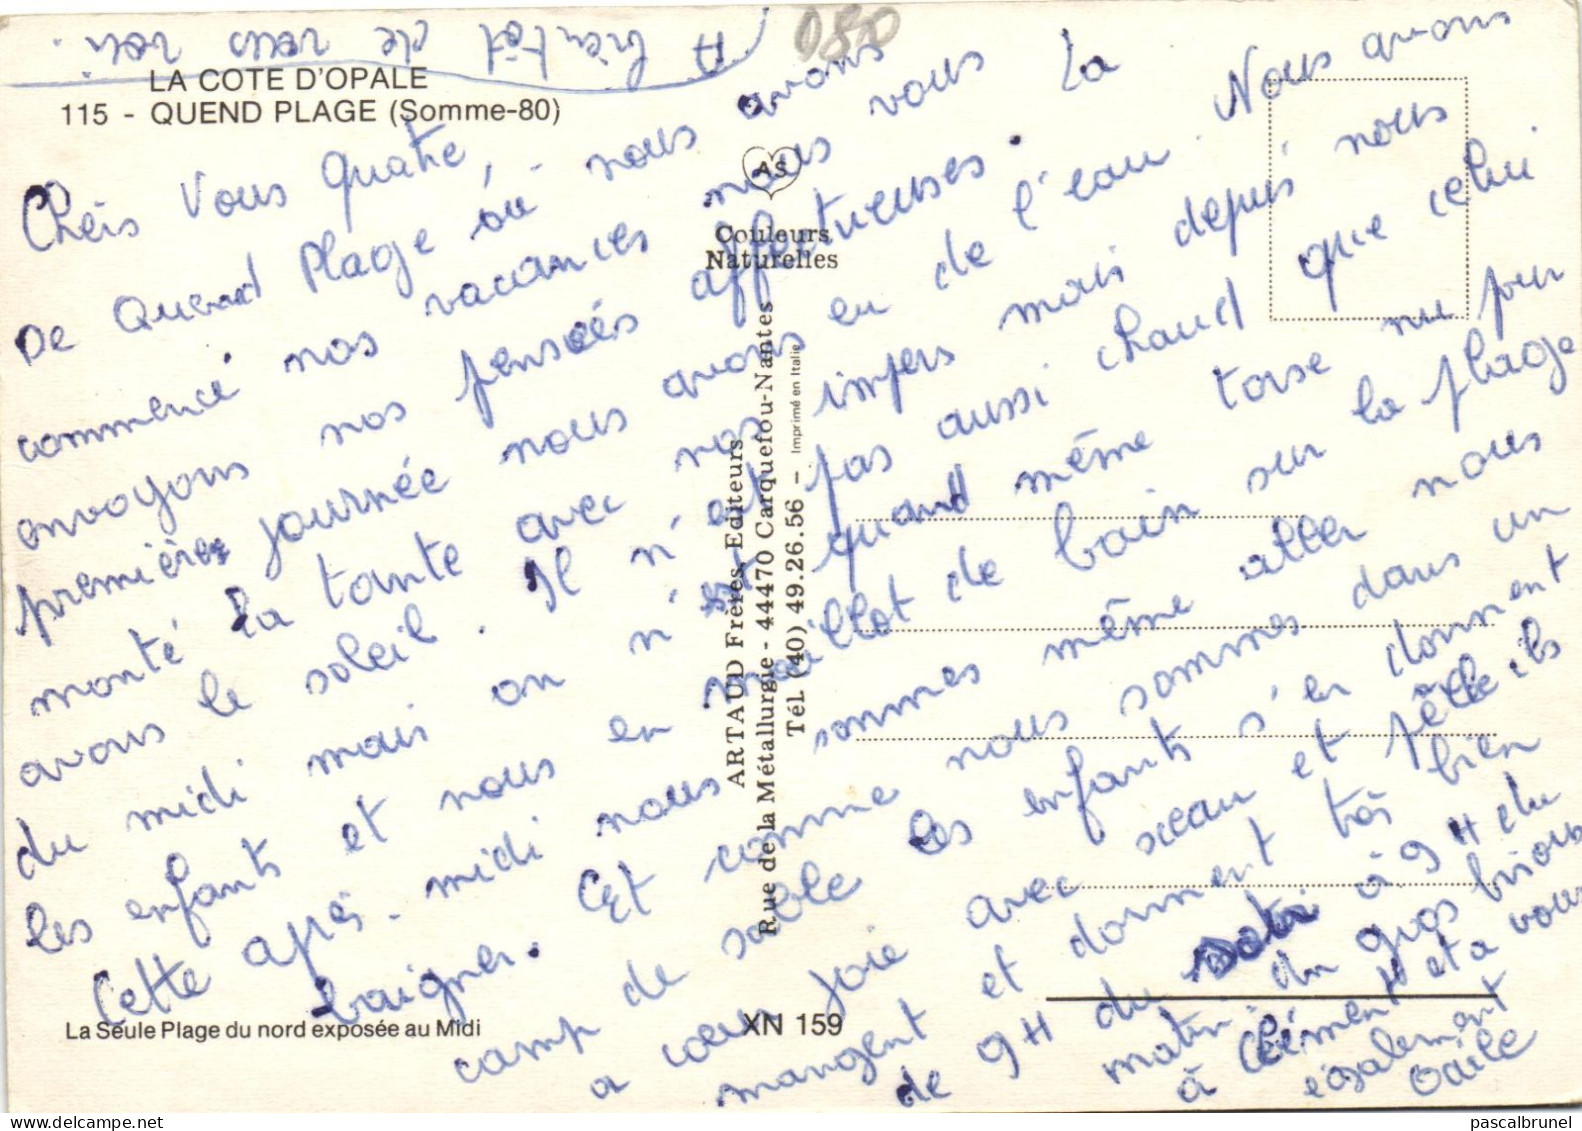 A bientôt de vous voir.
080
LA COTE D'OPALE
115 - QUEND PLAGE (Somme-80)
Chers Vous Quatre,
De Quend Plage où nous avons
commencé nos vacances nous vous
envoyons nos pensées affectueuses. La
première journée nous avons eu de l'eau. Nous avons
monté la tante avec nos impers mais depuis nous
avons le soleil. Il n'est pas aussi chaud que celui
du midi mais on n'est quand même torse nu pour
les enfants et nous en maillot de bain sur la plage
Cette après-midi nous sommes même aller nous
baigner. Et comme nous sommes dans un
camp de sable les enfants s'en donnent
a coeur joie avec sceau et pelle ils
mangent et dorment très bien
de 9H du soir à 9H du
matin. du gros bisous
à Clément et a vous
également
Odile
AS
Couleurs
Naturelles
ARTAUD Frères, Editeurs
Rue de la Métallurgie - 44470 Carquefou-Nantes
Tél. (40) 49.26.56 - Imprimé en Italie
La Seule Plage du nord exposée au Midi
XN 159
pascalbrunel